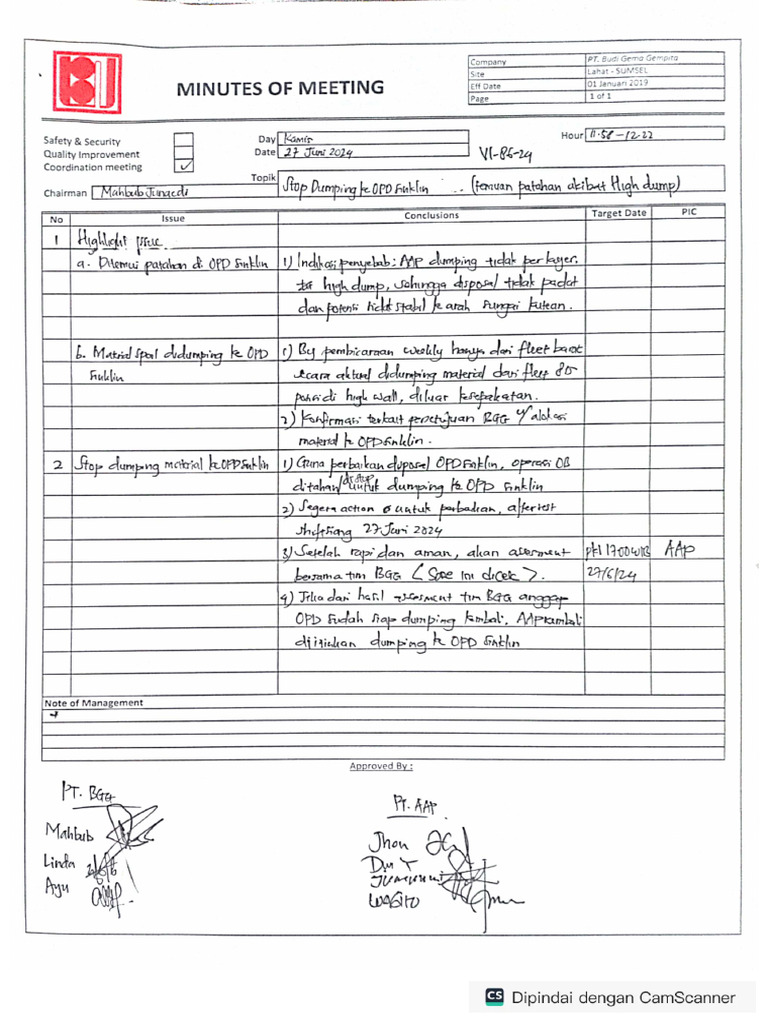 MINUTES OF MEETING
Company PT. Budi Gema Gempita
Site Lahat - SUMSEL
Eff Date 01 Januari 2019
Page 1 of 1
Safety & Security
Quality Improvement
Coordination meeting ✓
Day Kamis
Date 27 Juni 2024
Hour 11.58 - 12.22
VI-85-24
Topik Stop Dumping ke OPD Sinklin (temuan patahan akibat High dump)
Chairman Mahbub Junaedi
No Issue Conclusions Target Date PIC
1 Highlight issue
a. Ditemui patahan di OPD Sinklin 1) Indikasi penyebab: AAP dumping tidak per layer,
high dump, sehingga disposal tidak padat
dan potensi tidak stabil ke arah sungai
b. Material spoil didumping ke OPD 1) By pembicaraan weekly hanya dari fleet barat
Sinklin secara aktual didumping material dari fleet 85
posisi di high wall, diluar kesepakatan.
2) Konfirmasi terkait persetujuan BGG u/ alokasi
material ke OPD Sinklin.
2 Stop dumping material ke OPD Sinklin 1) Guna perbaikan disposal OPD Sinklin, operasi OB
ditahan/distop untuk dumping ke OPD Sinklin
2) Segera action untuk perbaikan,
shift siang 27 Juni 2024
3) Setelah rapi dan aman, akan asesment pkl 1700 WIB AAP
bersama tim BGG < Sore ini dicek >. 27/6/24
4) Jika dari hasil assesment tim BGG anggap
OPD sudah siap dumping kembali, AAP kembali
diijinkan dumping ke OPD Sinklin
Note of Management
Approved By :
PT. BGG
Mahbub
Linda
Ayu
PT. AAP
Jhon
Dwi Y
WAGITO
CS Dipindai dengan CamScanner